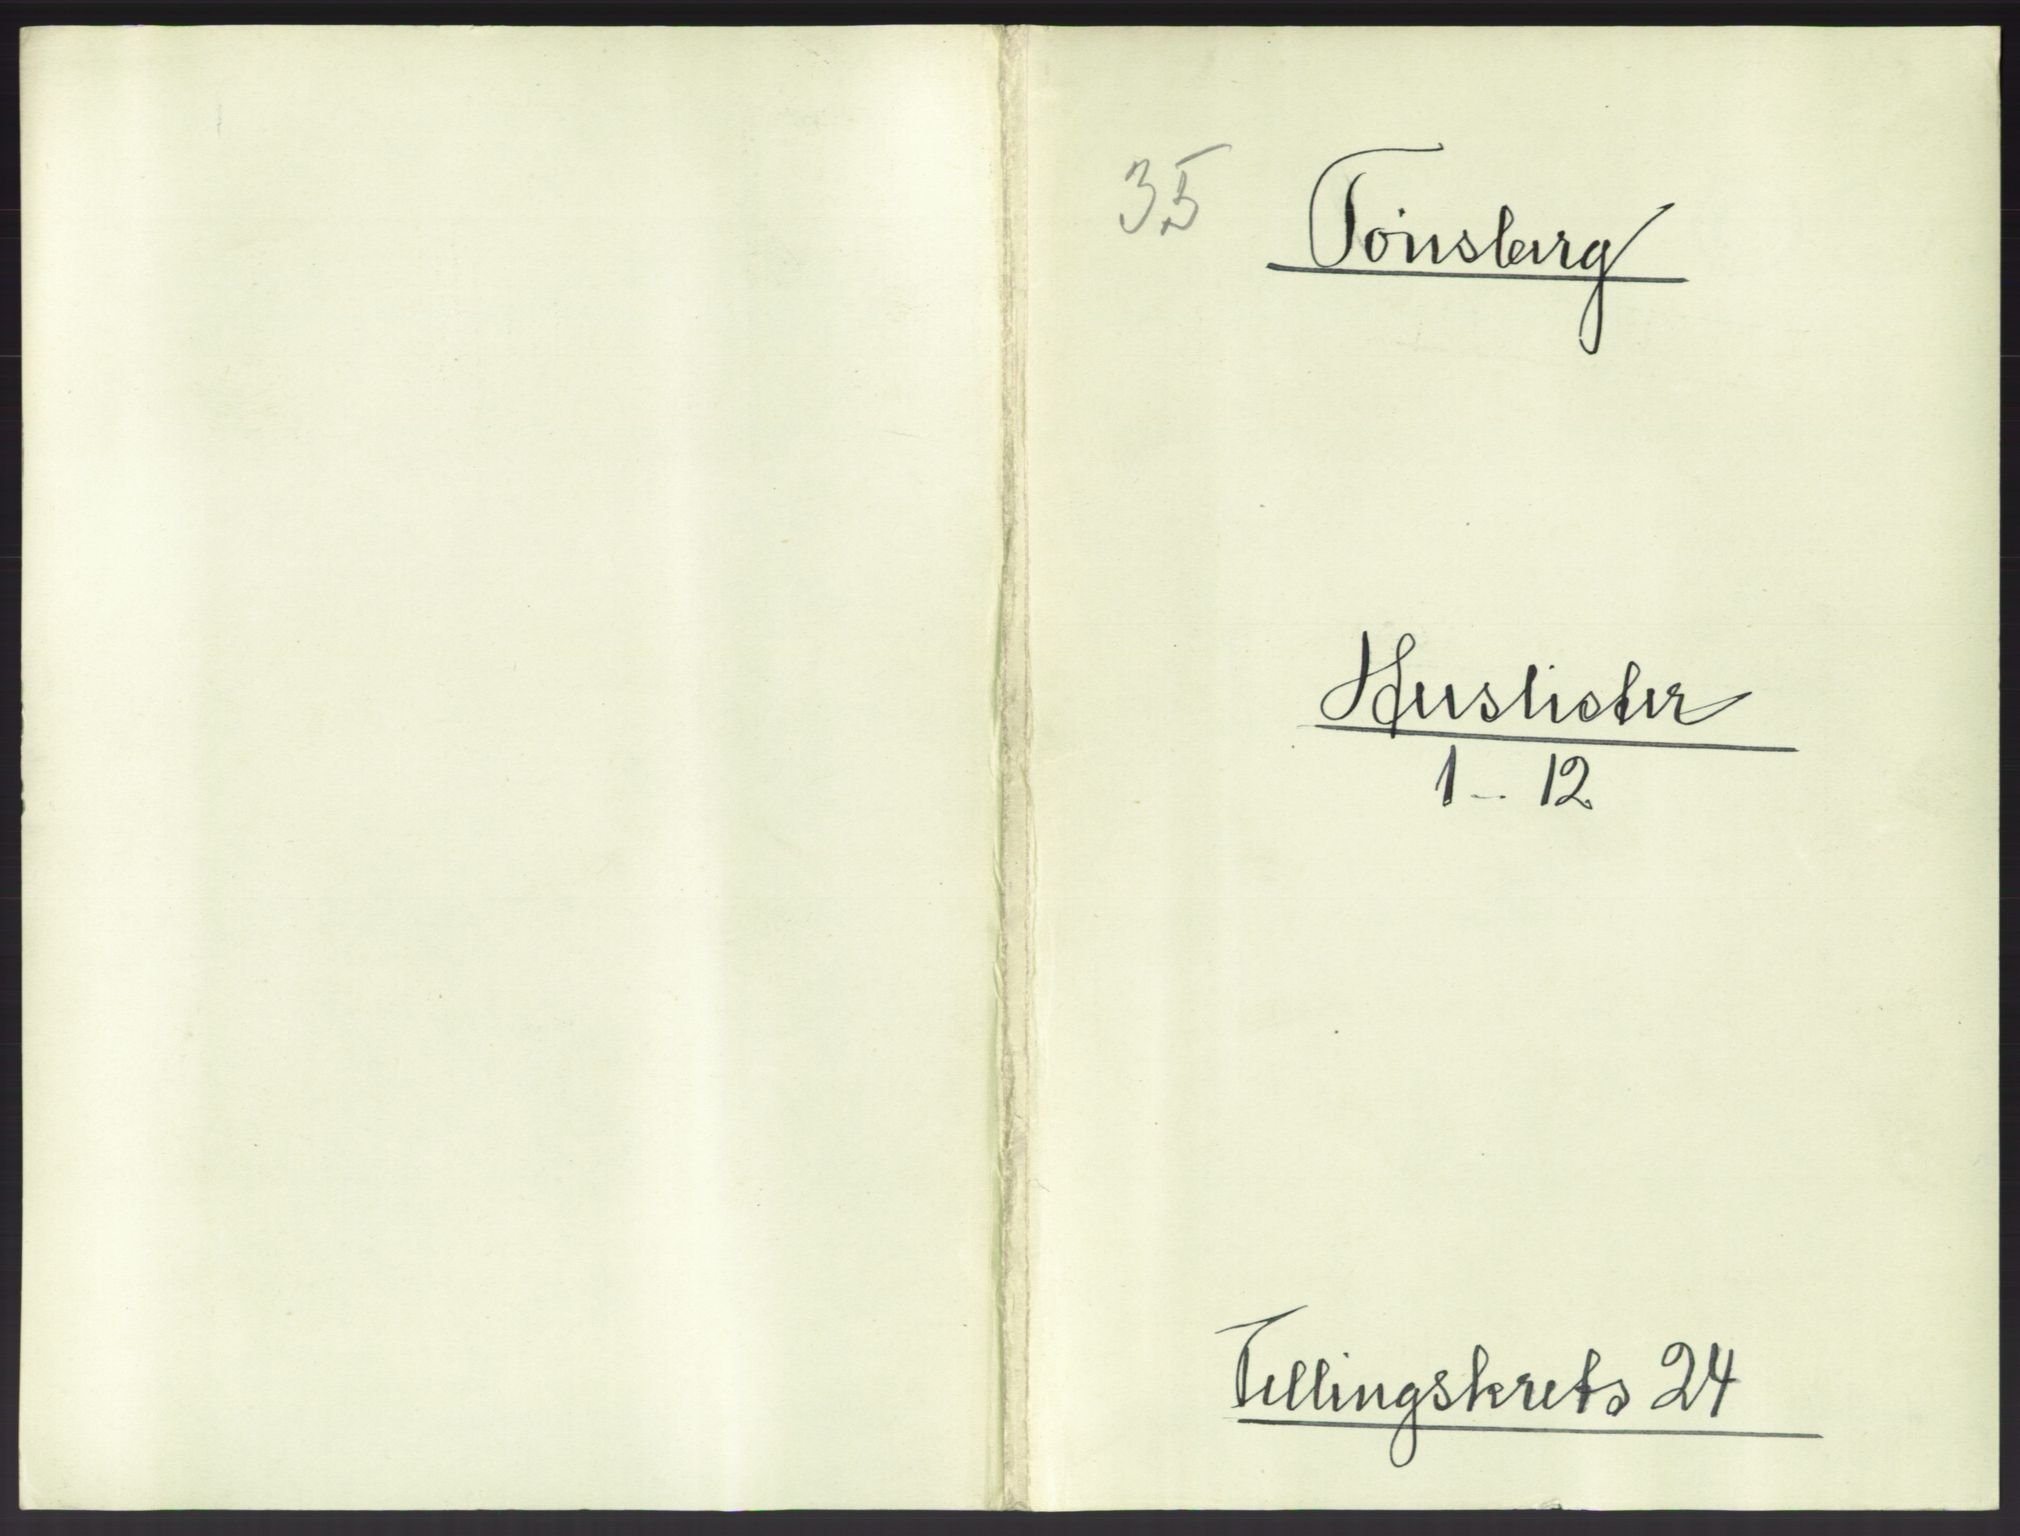 35
Tönsberg
Huslister
1 - 12
Tellingskrets 24